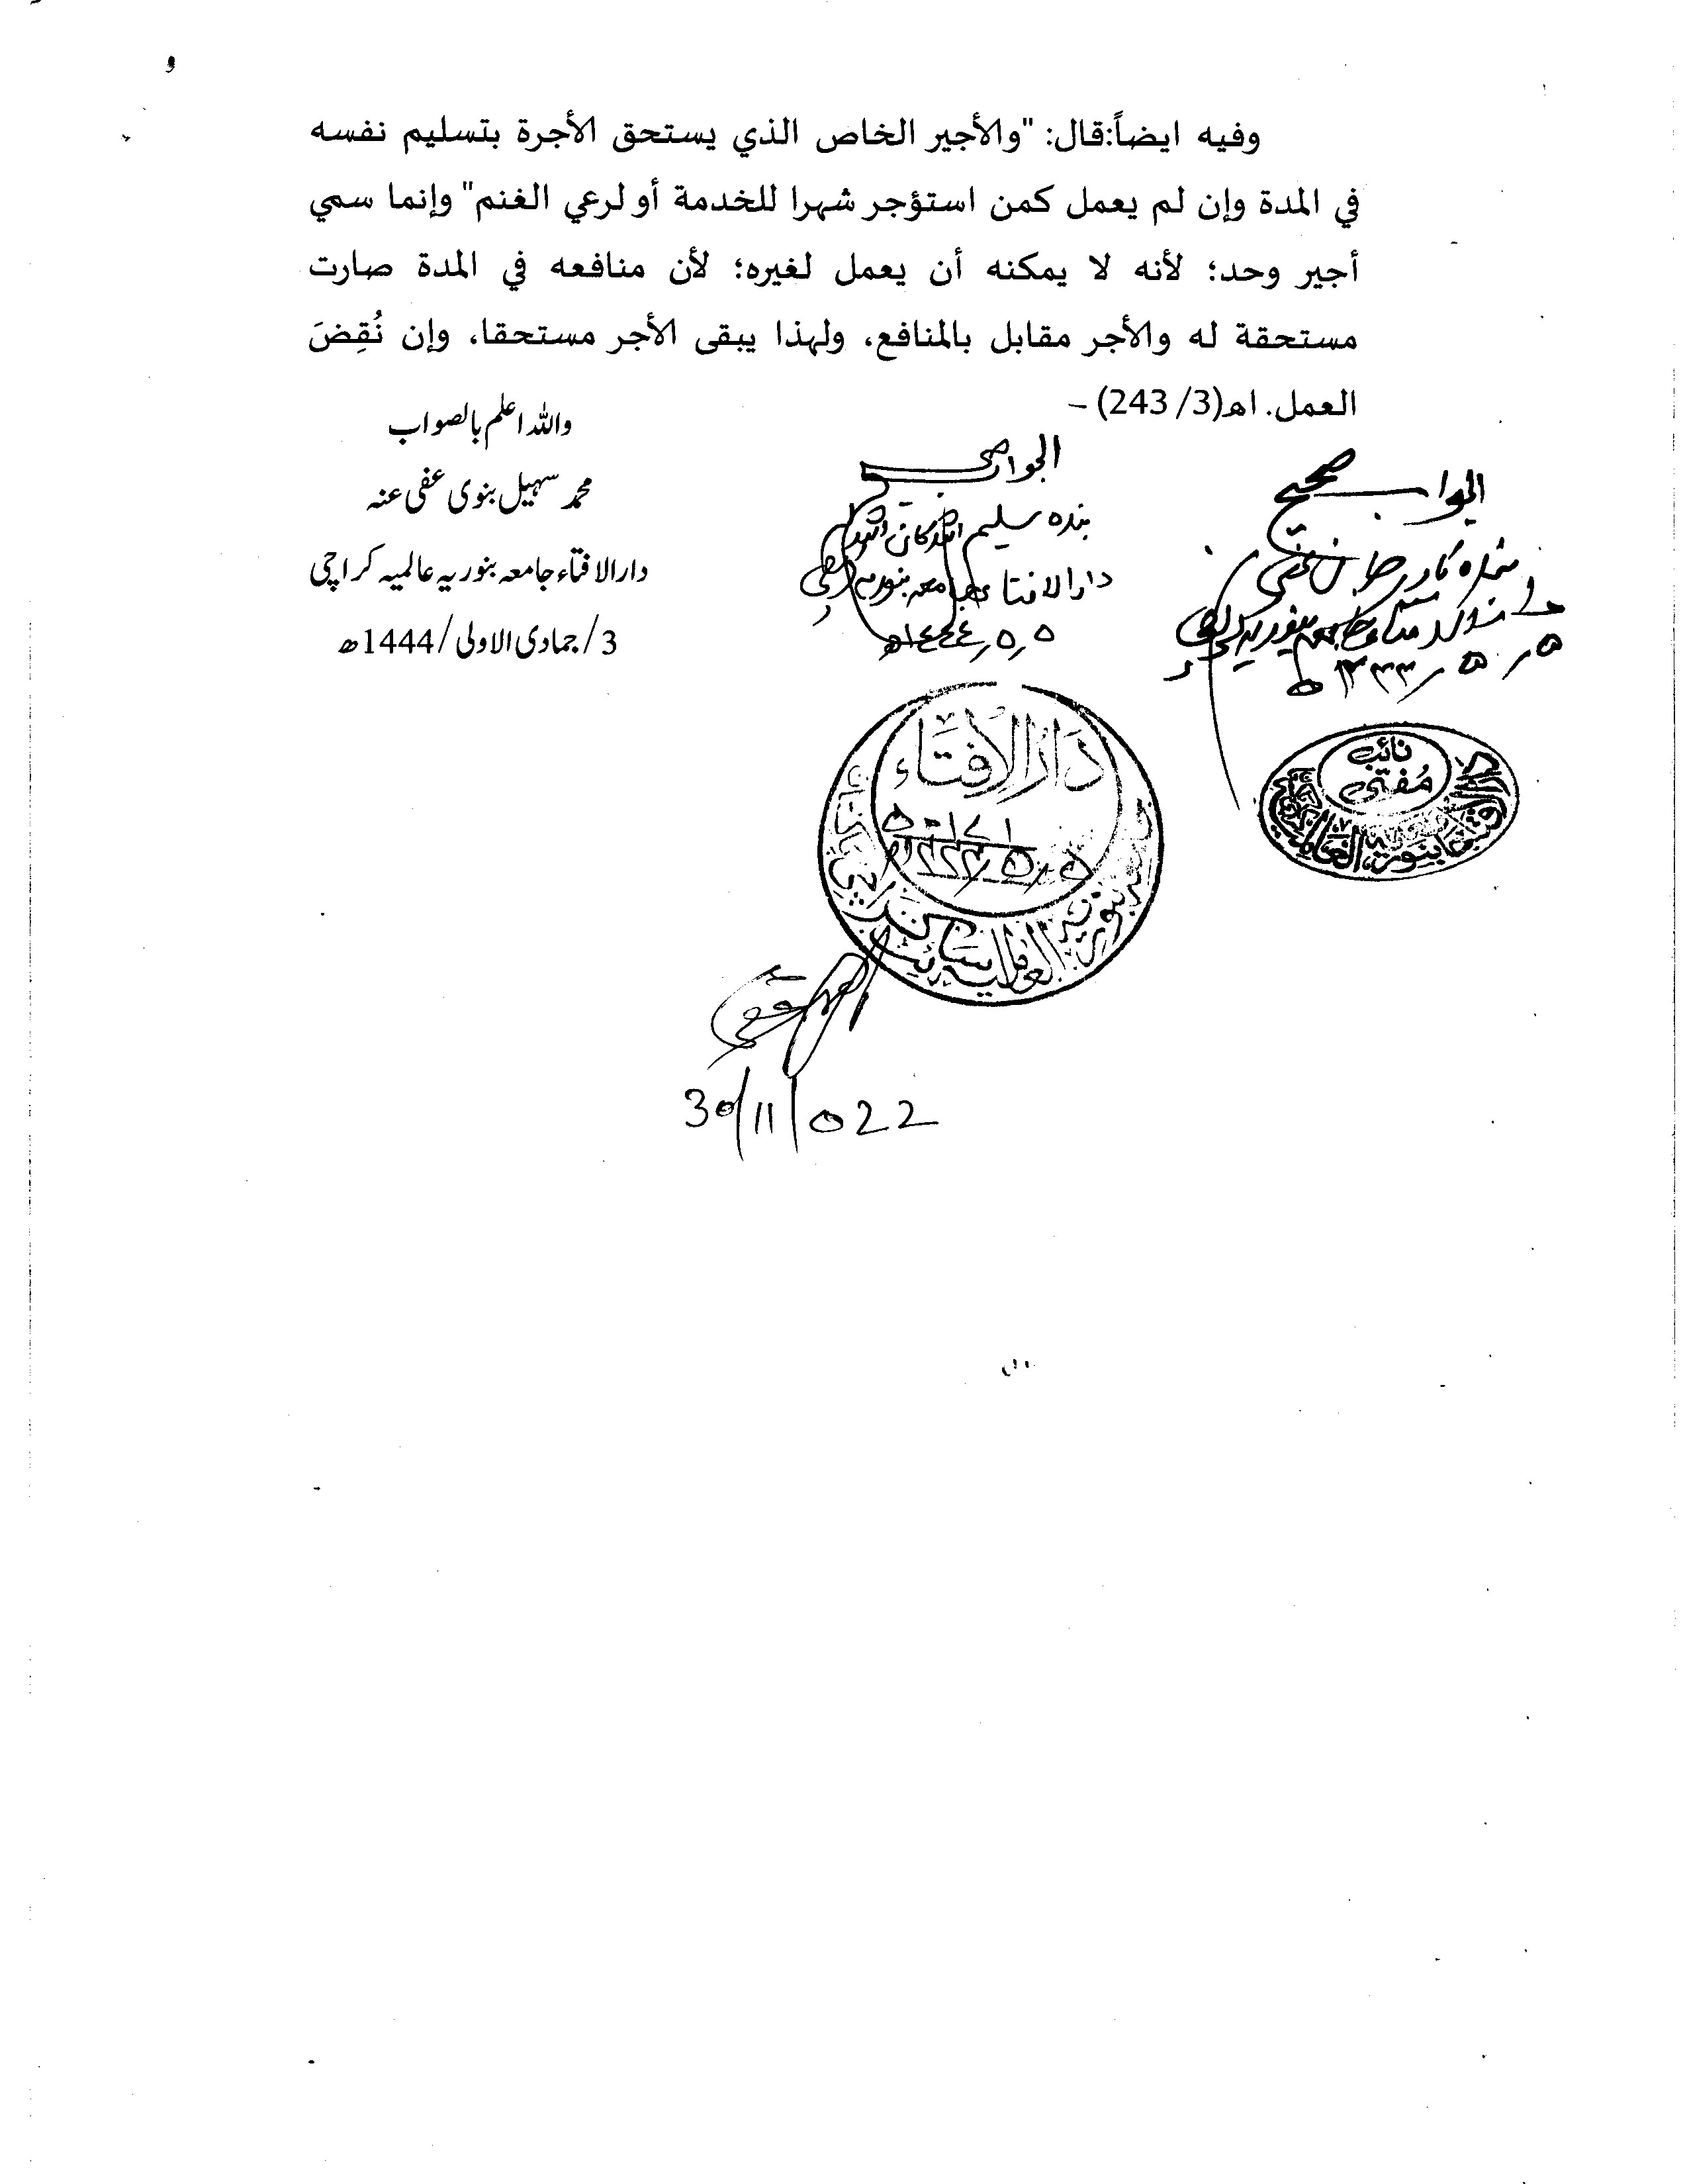 وفيه ايضاً:قال: "والأجير الخاص الذي يستحق الأجرة بتسليم نفسه
في المدة وإن لم يعمل كمن استؤجر شهرا للخدمة أو لرعي الغنم" وإنما سمي
أجير وحد؛ لأنه لا يمكنه أن يعمل لغيره؛ لأن منافعه في المدة صارت
مستحقة له والأجر مقابل بالمنافع، ولهذا يبقى الأجر مستحقا، وإن نُقِضَ
العمل. اه(3/ 243) –
واللہ اعلم بالصواب
محمد سہیل بنوی عفی عنہ
دارالافتاء جامعہ بنوریہ عالمیہ کراچی
3/جمادی الاولی/1444ھ
الجواب صحیح
بندہ سلیم اللہ
دارالافتاء جامعہ بنوریہ کراچی
٥٫٥٫١٤٤٤ھ
الجواب صحیح
بندہ نادر جان
دارالافتاء جامعہ بنوریہ کراچی
دَارُالاِفتَاء
نائب
مُفتی
30/11/022